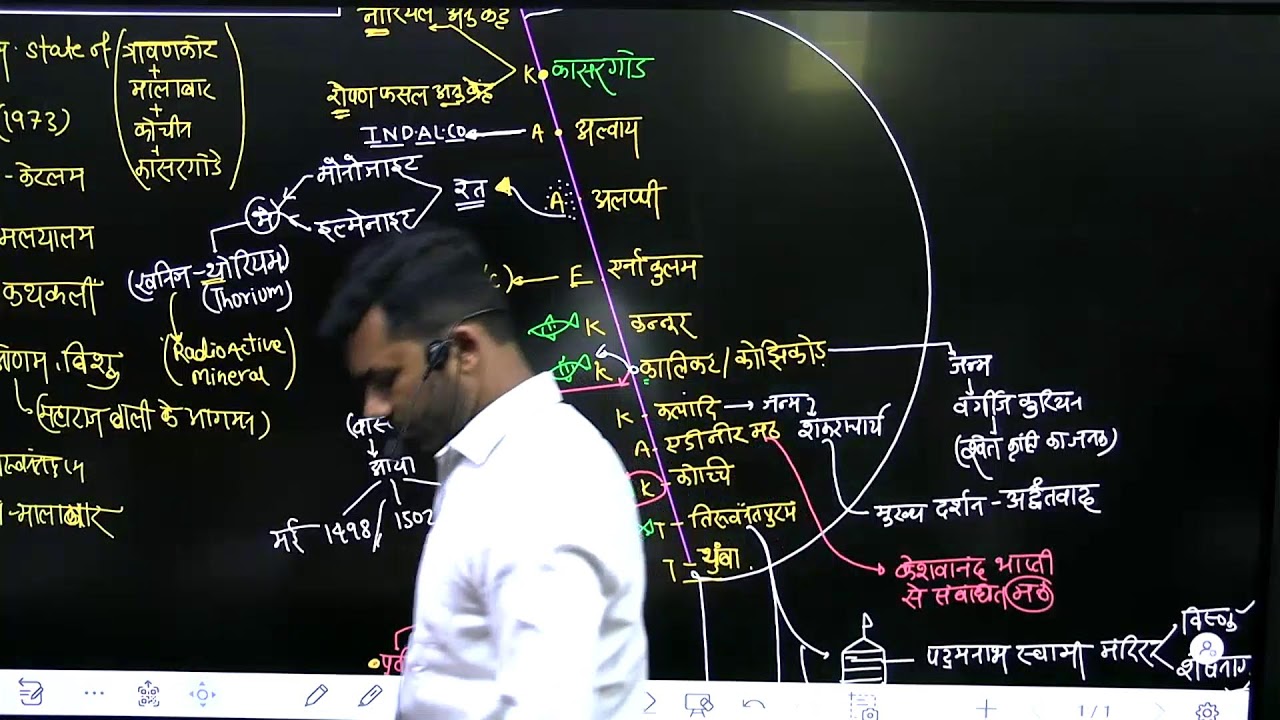 नारियल अनु॰ केंद्र
state of (त्रावणकोर
+
मालाबार
+
कोचीन
+
कासरगोड)
K कासरगोड
रोपण फसल अनु॰ केंद्र
(1973)
IND.AL.CO A अल्वाय
- केरलम
मोनोजाइट
रेत A अलप्पी
इल्मेनाइट
मलयालम
(खनिज - थोरियम)
(Thorium)
E एर्नाकुलम
कथकली
K कन्नूर
(RadioActive
mineral)
विशु
K कालिकट / कोझिकोड
जन्म
वर्गीज कुरियन
(श्वेत क्रांति का जनक)
K - कलादि → जन्म
शंकराचार्य
A - एडनीर मठ
K - कोच्चि
आया
मई 1498 / 1502
मुख्य दर्शन - अद्वैतवाद
- मालाबार
T - तिरुवनंतपुरम
T - थुंबा
केशवानंद भारती
से संबंधित मठ
पदमनाभ स्वामी मंदिर
विष्णु
शेषनाग
1/1